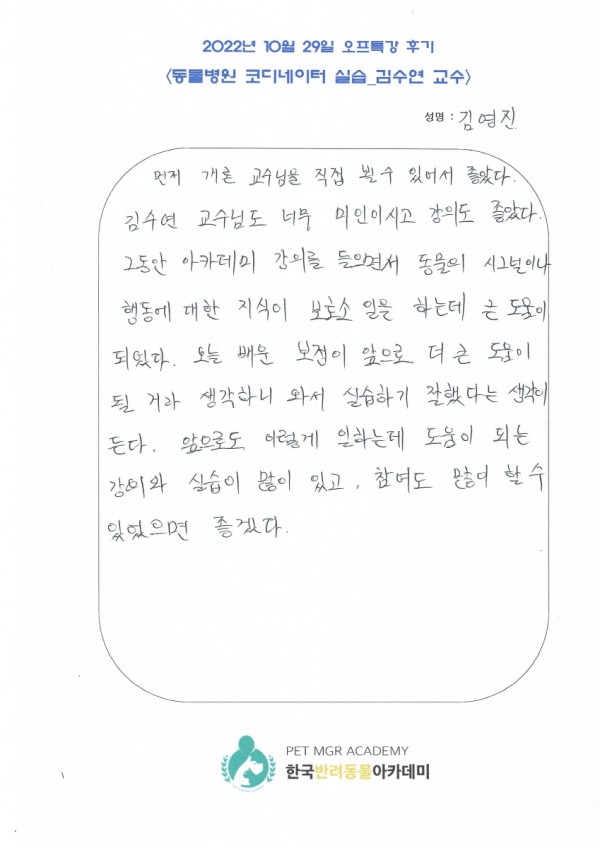 2022년 10월 29일 오프특강 후기
<동물병원 코디네이터 실습_김수연 교수>
성명 : 김영진
먼저 개론 교수님을 직접 뵐 수 있어서 좋았다.
김수연 교수님도 너무 미인이시고 강의도 좋았다.
그동안 아카데미 강의를 들으면서 동물의 시그널이나
행동에 대한 지식이 보호소 일을 하는데 큰 도움이
되었다. 오늘 배운 보정이 앞으로 더 큰 도움이
될 거라 생각하니 와서 실습하기 잘했다는 생각이
든다. 앞으로도 이렇게 일하는데 도움이 되는
강의와 실습이 많이 있고, 참여도 많이 할 수
있었으면 좋겠다.
PET MGR ACADEMY
한국반려동물아카데미